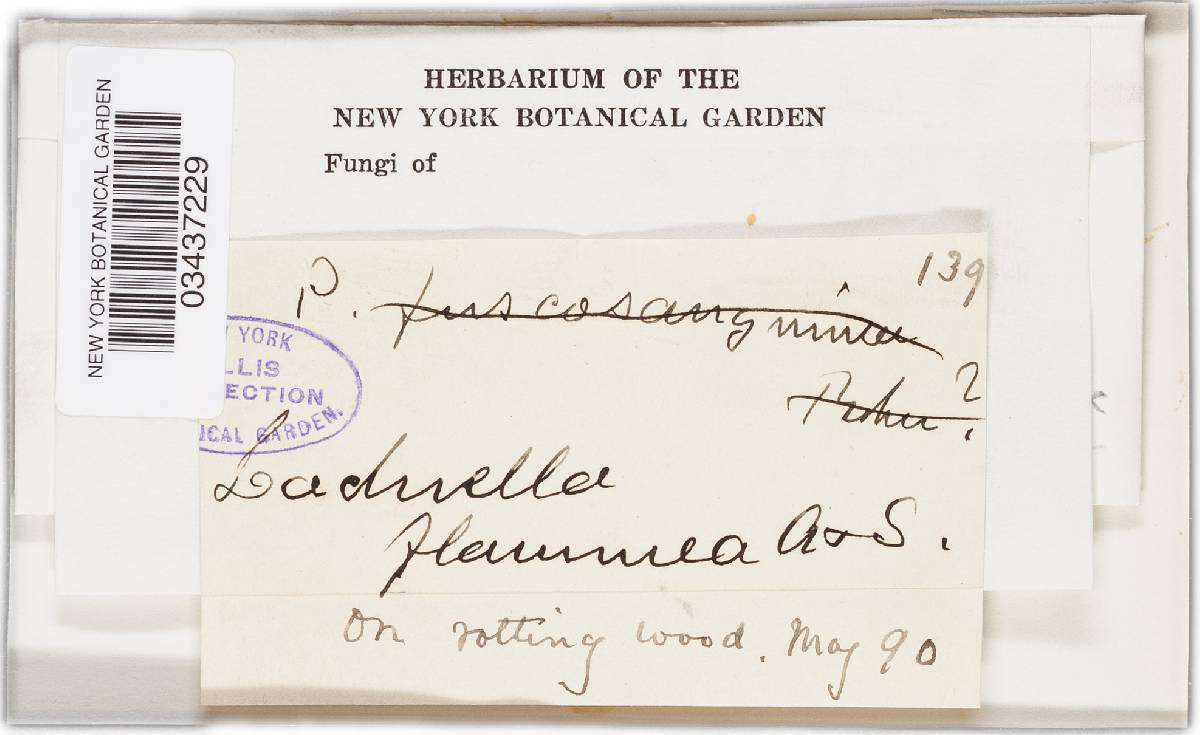 HERBARIUM OF THE
NEW YORK BOTANICAL GARDEN
Fungi of
NEW YORK BOTANICAL GARDEN
03437229
139
P. fuscosanguinea
?
YORK
LLIS
ECTION
ICAL GARDEN.
Lachnella
flammea A&S.
On rotting wood. May 90